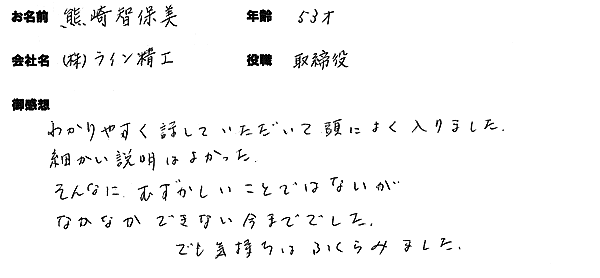 お名前 熊崎智保美 年齢 53才
会社名 (株)ライン精工 役職 取締役
御感想
わかりやすく話していただいて頭によく入りました.
細かい説明はよかった.
そんなに、むずかしいことではないが
なかなかできない今まででした.
でも気持ちはふくらみました.